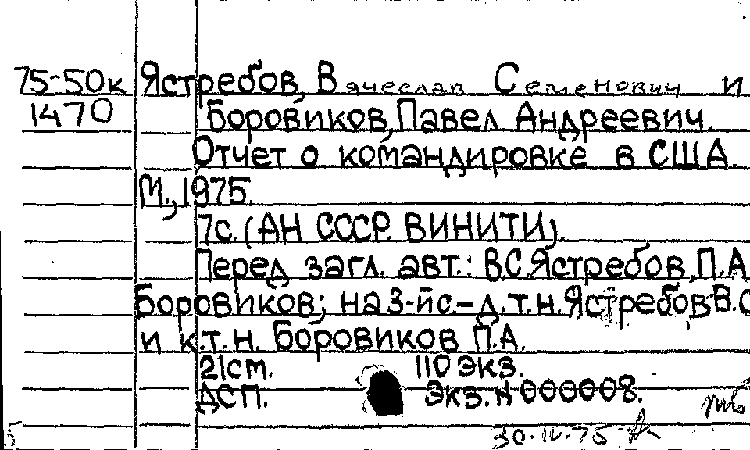 75-50к Ястребов, Вячеслав Семенович и
1470 Боровиков, Павел Андреевич.
Отчет о командировке в США.
М., 1975.
7с. (АН СССР. ВИНИТИ).
Перед загл. авт.: В.С. Ястребов, П.А.
Боровиков; на 3-й с. – д.т.н. Ястребов В.С.
и к.т.н. Боровиков П.А.
21 см. 110 экз.
ДСП. Экз. № 000008.
30.IV.75